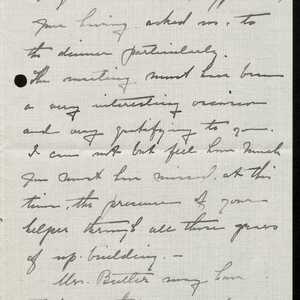 your having asked us, to
the dinner particularly.
The meeting must have been
a very interesting occasion
and very gratifying to you.
I can not but feel how much
you must have missed, at this
time, the presence of your
helper through all those years
of up-building. —
Mrs. Butler may have